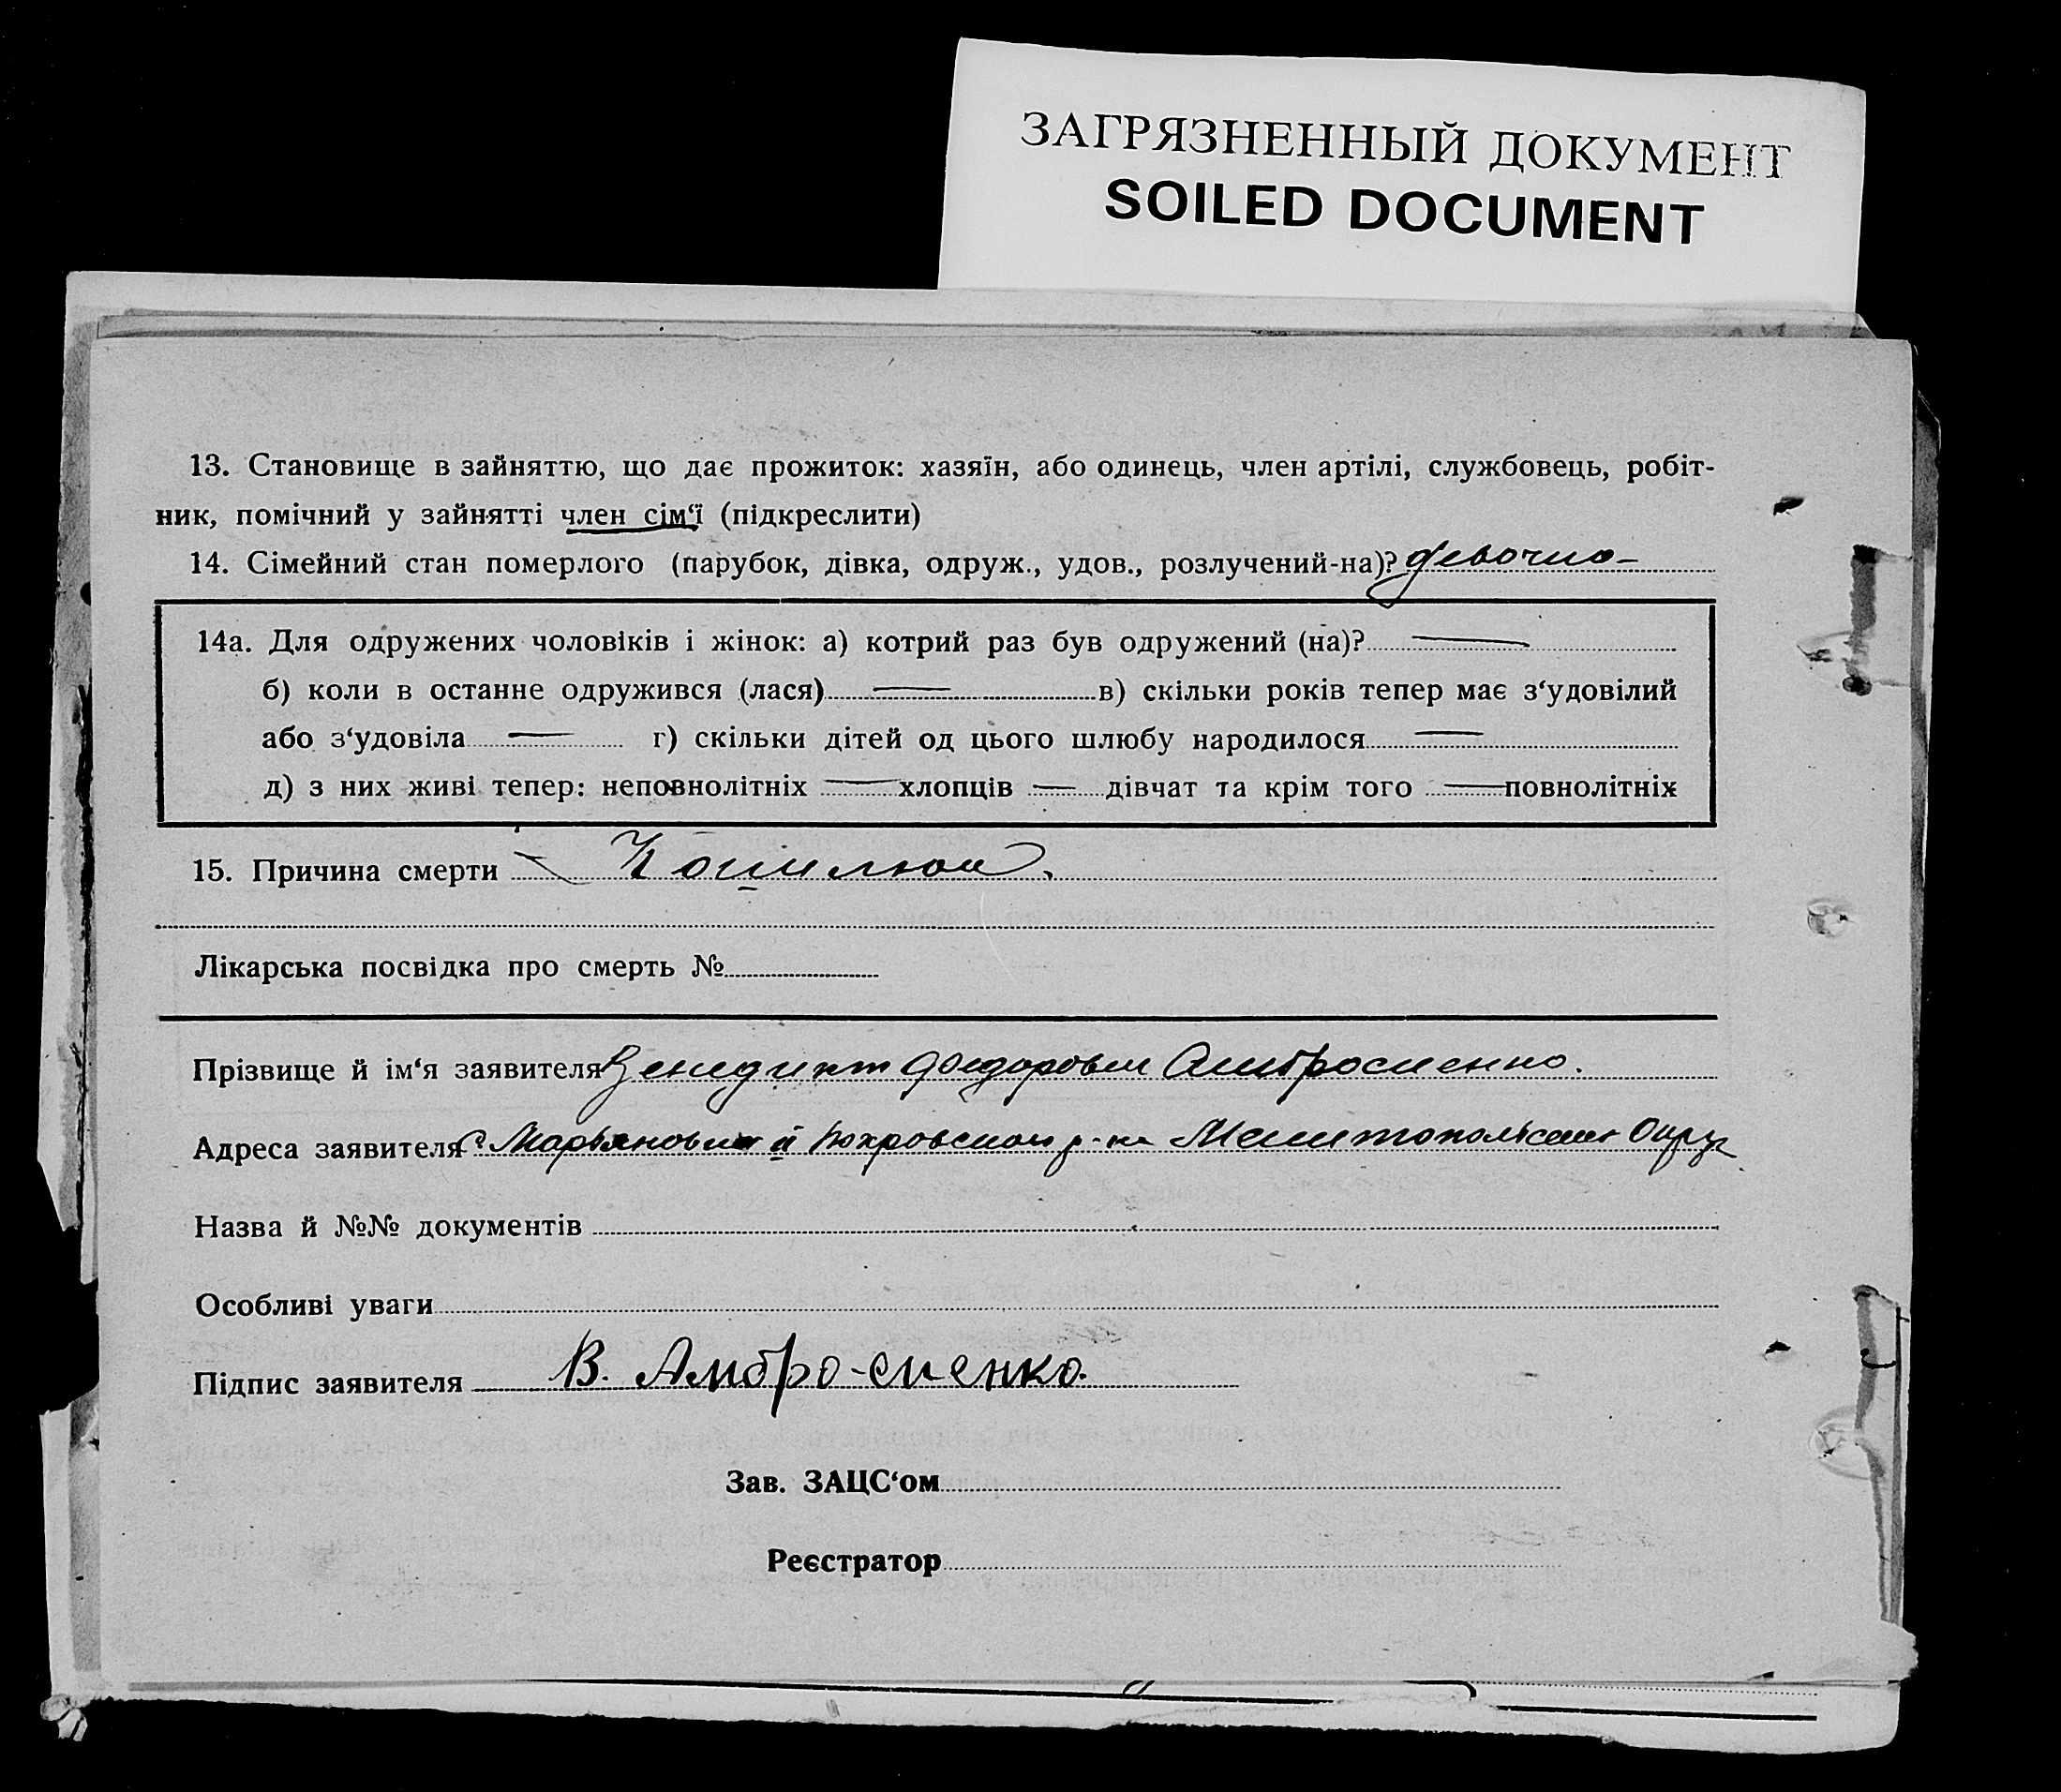 ЗАГРЯЗНЕННЫЙ ДОКУМЕНТ
SOILED DOCUMENT
13. Становище в зайняттю, що дає прожиток: хазяїн, або одинець, член артілі, службовець, робіт-
ник, помічний у зайнятті член сім‘ї (підкреслити)
14. Сімейний стан померлого (парубок, дівка, одруж., удов., розлучений-на)?
14а. Для одружених чоловіків і жінок: а) котрий раз був одружений (на)? —
б) коли в останне одружився (лася) — в) скільки років тепер має з‘удовілий
або з‘удовіла — г) скільки дітей од цього шлюбу народилося —
д) з них живі тепер: неповнолітніх — хлопців — дівчат та крім того — повнолітніх
15. Причина смерти
Лікарська посвідка про смерть №
Прізвище й ім‘я заявителя Венедикт Федорович Амбросиенко.
Адреса заявителя Покровского р-на Мелитопольского Округ
Назва й №№ документів
Особливі уваги
Підпис заявителя В. Амбро-сиенко.
Зав. ЗАЦС‘ом
Реєстратор